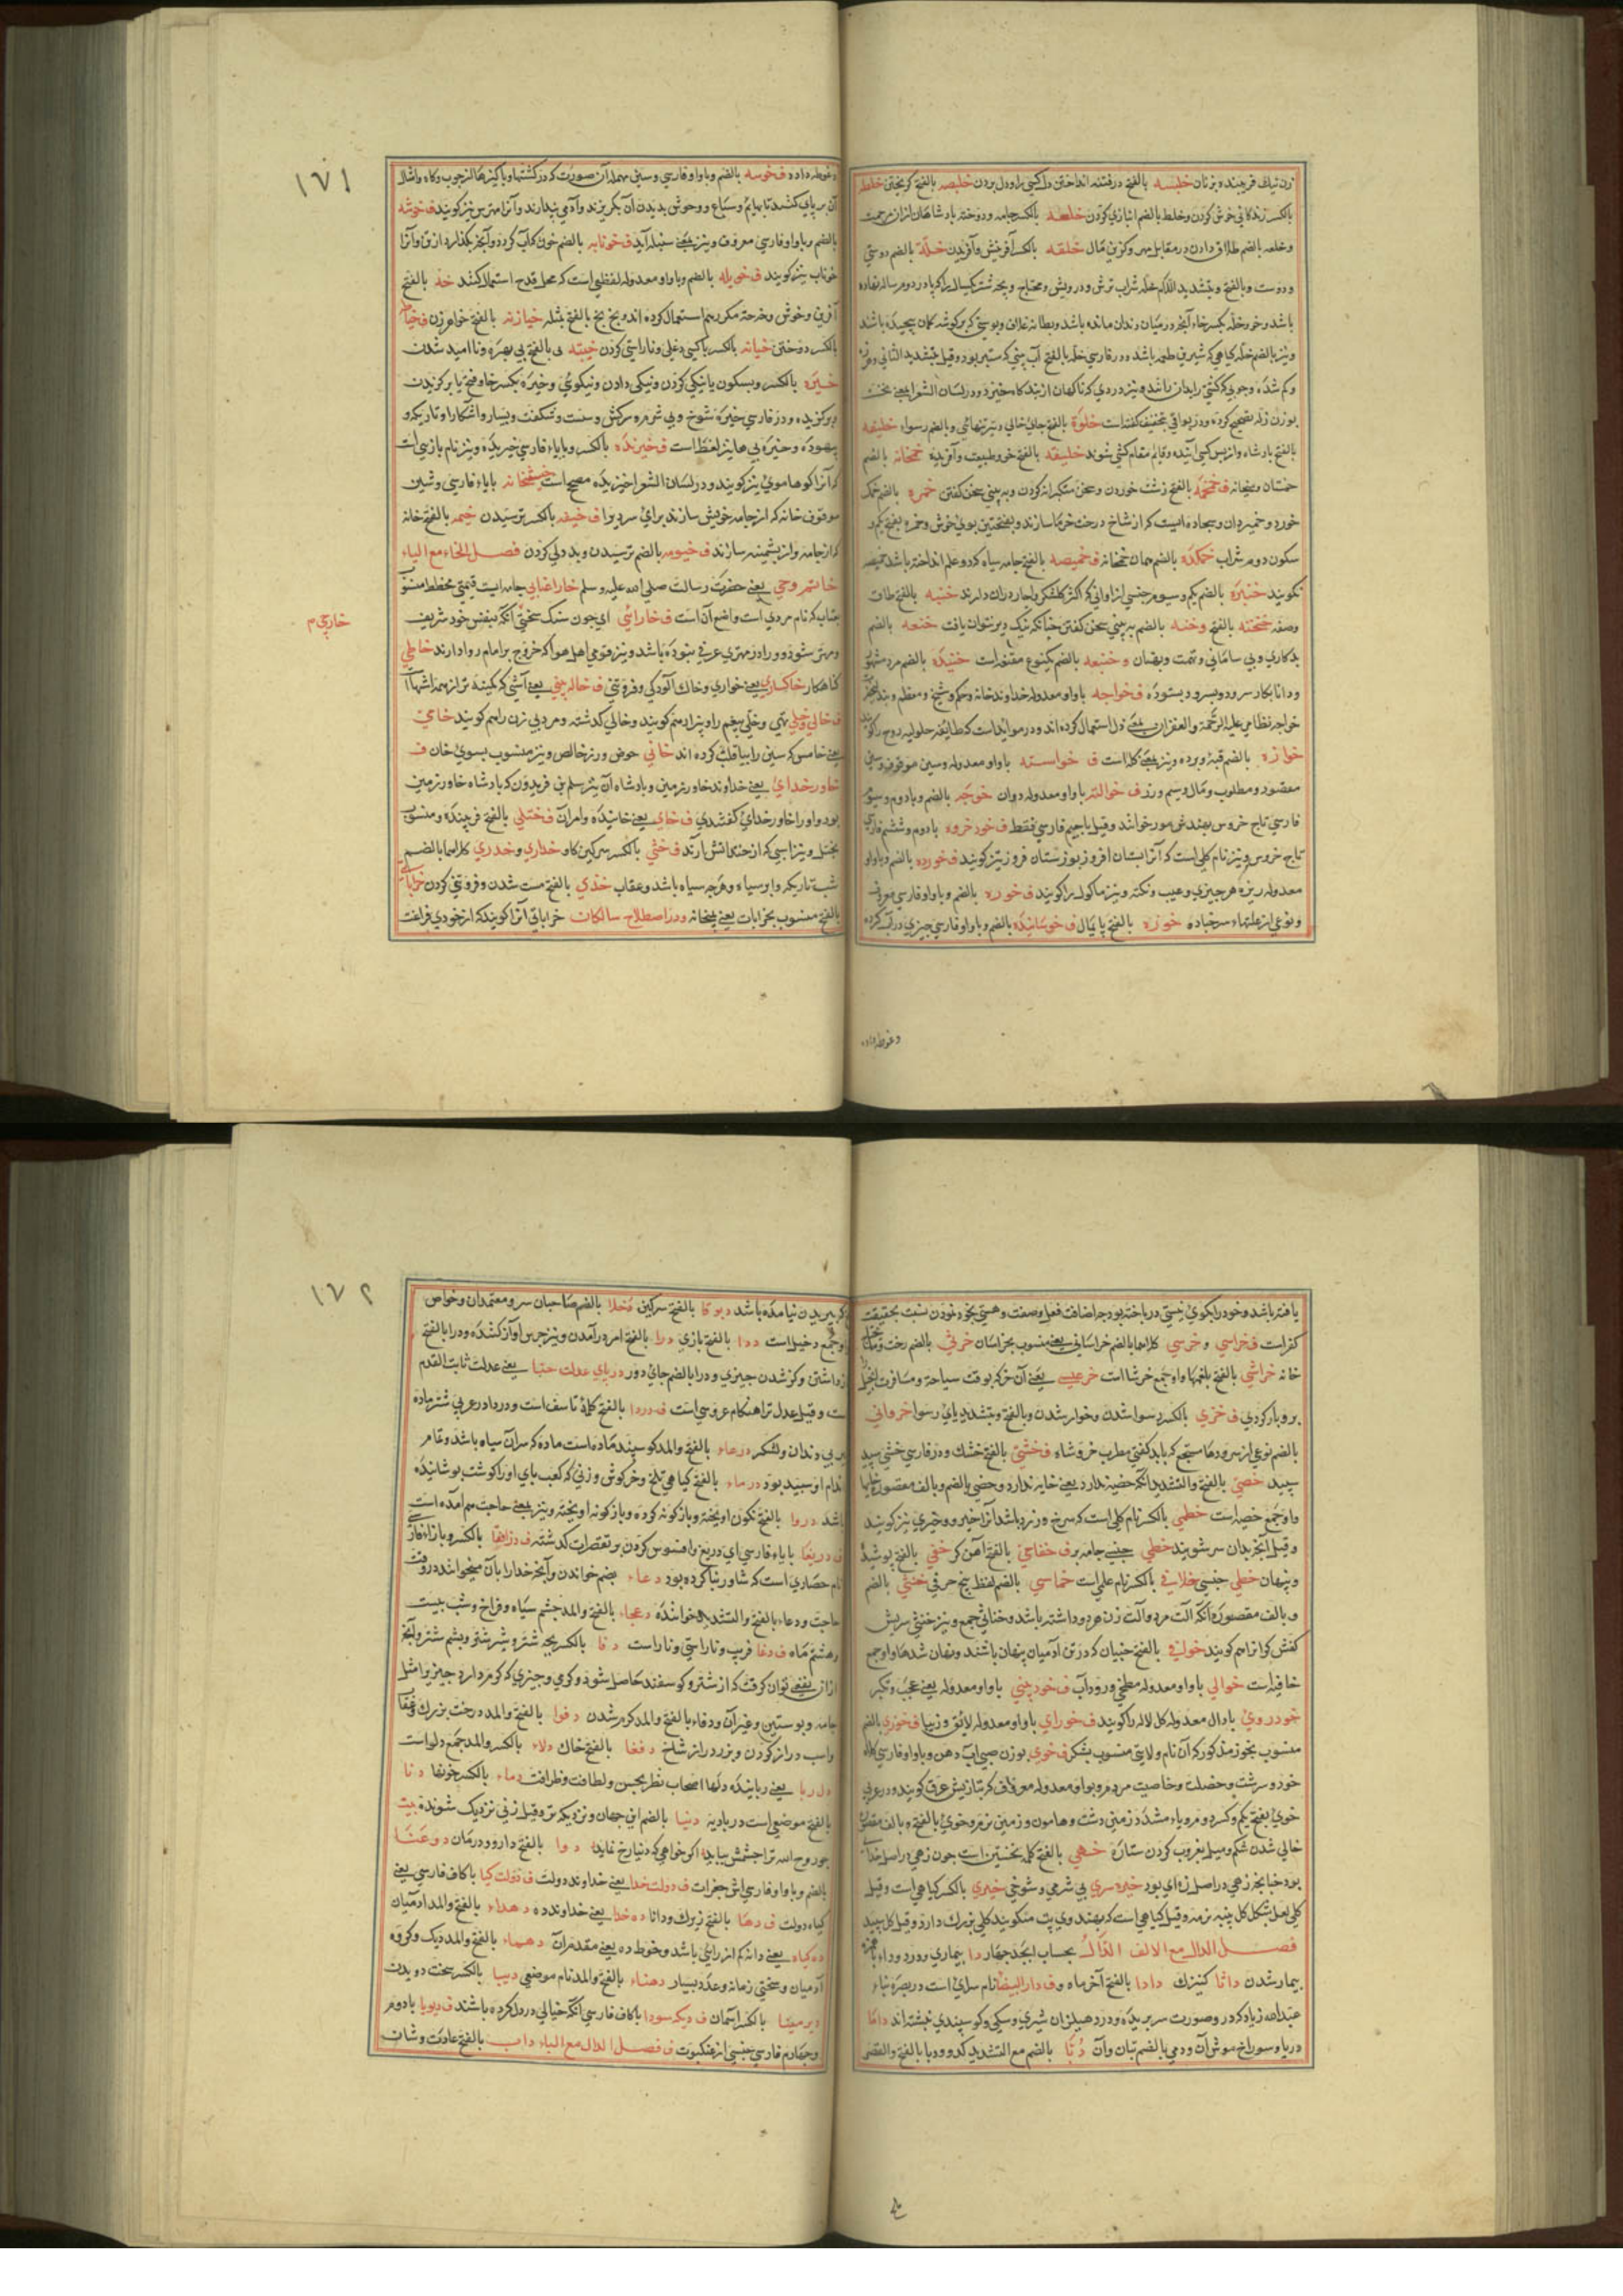 زن نیک فریبنده و بزنان خلیسه بالفتح در فتنه انداختن دل کسی را و دل بردن خلیصه بالفتح گریختن خلطه
بالکسر زندگانی خوش کردن و خلط بالضم انبازی کردن خلعه بالکسر جامه و دوخته بادشاهان از
و خلعه بالضم طلاق دادن در مقابل مهر و گزین مال خلقه بالکسر آفرینش و آفریدن خلّة بالضم دوستی
و دوست و بالفتح و بتشدید اللام خلّه شراب ترش و درویش و محتاج و بچه شتر
باشد و خلّه بکسر خاء آنچه در میان دندان مانده باشد و بطانه غلاف و پوستی که بر گوشه کمان پیچیده باشند
و نیز بالضم خلّه گیاهی که شیرین طعم باشد و در فارسی خله بالفتح آب بینی که ستبر بود و قیل بتشدید الثانی
و کم شده و چوبی که کشتی را بدان رانند و نیز دردی که ناگهان از بندگاه خیزد و در لسان الشعرا بمعنی
بوزن زله تصحیح کرده و در بواقی بتخفیف گفته است خلوة بالفتح جای خالی و نیز تنهائی و بالضم رسواء خلیفه
بالفتح بادشاه و از پس کسی آینده و قایم مقام کسی شونده خلیقه بالفتح خو و طبیعت و آفریده خمخانه بالضم
خمستان و میخانه ف خمخمه بالفتح زشت خوردن و سخن متکبرانه کردن و به بینی سخن گفتن خمره بالضم خمک
خورد و خمیردان و سجاده ایست که از شاخ درخت خرما سازند و بفتحتین بوی خوش و خمره بفتح یکم و
سکون دوم شراب خمکده بالضم همان خمخانه ف خمیصه بالفتح جامه سیاه که دو علم انداخته باشد
نگویند خنبره بالضم یکم و سیوم جنسی از اوانی که اکثر گلشکر و اچار دران دارند خنبه بالفتح طاق
و صفه خنخنه بالفتح و خنه بالضم به بینی سخن گفتن چنانکه نیک دیر نتوان یافت خنعه بالضم
بدکاری و بی سامانی و تهمت و بهتان و خنبعه بالضم یکنوع مقنعه است خنیده بالضم مرد مشهور
و دانا بکار سرود و بسرود بستوده ف خواجه باواو معدوله خداوند خانه و حکم و شیخ و معظم
خواجه نظامی علیه الرحمة و الغفران بمعنی دل استعمال کرده اند و در موائد است که طایفه حلولیه روح را گویند
خوازه بالضم قبه و برده و نیز بمعنی کلا است ف خواسته باواو معدوله و سین موقوف
مقصود و مطلوب و مال و سیم و زر ف خوالته باواو معدوله دوان خوجه بالضم و بادوم و سیوم
فارسی تاج خروس بهندش مور خوانند و قیل باجیم فارسی فقط ف خود خروه بادوم و ششم فارسی
تاج خروس و نیز نام گلی است که آنرا بستان افروز و بوزستان فروز نیز گویند ف خورده بالضم و باواو
معدوله ریزه هر چیزی و عیب و نکته و نیز ماکول را گویند ف خوره بالضم و باواو فارسی معروف
و نوعی از علتهاء سرخباده خوزه بالفتح پایمال ف خوسانیده بالضم و باواو فارسی چیزی در آب کرده
و غوطه داده
۱۷۱
و غوطه داده ف خوسه بالضم و باواو فارسی و سین مهمله آن صورت که در کشتها و باکیزها از چوب و کاه و امثال
آن بر پای کنند تا بهایم و سباع و وحوش بدیدن آن بگریزند و آدمی پندارند و آنرا مترس نیز گویند ف خوشه
بالضم و باواو فارسی معروف و نیز بمعنی سنبله آید ف خونابه بالضم خون که آب گردد و آنچه بگذارد از تن و آنرا
خوناب نیز گویند ف خویله بالضم و باواو معدوله لفظی است که محل قدح استعمال کنند خه بالفتح
آفرین و خوش و خه خه مکرر هم استعمال کرده اند و بخ بخ بالفتح مثله خیازنه بالفتح خواهر زن
بالکسر دوختن خیانه بالکسر با کسی دغلی و ناراستی کردن خیبه بالفتح بی بهره و ناامید شدن
خیره بالکسر و بسکون یا نیکی کردن و نیکی دادن و نیکوئی و خیره بکسر خا و فتح یا برگزیدن
و برگزیده و در فارسی خیره شوخ و بی شرم و سرکش و سست و شگفت و بسیار و آشکارا و تاریک و
بیهوده و خیره بی ها نیز لغظ است ف خیزنده بالکسر و بایاء فارسی خیزیده و نیز نام بازی است
که آنرا کوهاموی نیز گویند و در لسان الشعرا خیزیده مصحح است خیشخانه بایاء فارسی و شین
موقوف خانه که از جامه خویش سازند برای سرد هوا ف خیفه بالکسر ترسیدن خیمه بالفتح خانه
که از جامه و از پشمینه سازند ف خیومه بالضم ترسیدن و بددلی کردن فصل الخاء مع الیاء
خاتم وحی یعنی حضرت رسالت صلی الله علیه و سلم خارا عتابی جامه ایست قیمتی مخطط منسوب
بعتاب که نام مردی است و واضع آن است ف خارائی ای چون سنگ سختی آنکه بنفس خود شریف
خارجی م
و مهتر شود و او را در مهتری عرقی نبوده باشد و نیز قومی اهل هوا که خروج بر امام روا دارند خاطی
گناهکار خاکساری یعنی خواری و خاک آلودگی و فروتنی ف خاله بینی یعنی آشتی که کمینه تر از همه آشها
ف خالی و خلی تهی و خلی بیغم را و بیزارهم گویند و خالی گذشته و مرد بی زن را هم گویند خامی
یعنی خامس که سین را بیا قلب کرده اند خانی حوض و زر خالص و نیز منسوب بسوی خان ف
خاور خدای یعنی خداوند خاور زمین و بادشاه آن نیز سلم بن فریدون که بادشاه خاور زمین
بود و او را خاور خدای گفتندی ف خای یعنی خائیده و امر آن ف ختلی بالفتح فریبنده و منسوب
بختل و نیز اسبی که از ختلانش آرند ف خثی بالکسر سرگین گاو خداری و خدری کلاهما بالضم
شب تاریک و ابر سیاه و هرچه سیاه باشد و عقاب خذی بالفتح سست شدن و فروتنی کردن خراباتی
بالفتح منسوب بخرابات یعنی میخانه و در اصطلاح سالکان خراباتی آنرا گویند که از خودی فراغت
یافته باشد و خود را بکوی نیستی درباخته بود چه اضافت فعل و صفت و هستی بخود نمودن نسبت بحقیقت
کفر است ف خراسی و خرسی کلاهما بالضم خراسانی یعنی منسوب بخراسان خرثی بالضم رخت و متاع
خانه خراشی بالفتح بلغمها و او جمع خرشا است خر عیسی یعنی آن خر که بوقت سیاحة و مسافرت انجیل
برو بار کردی ف خزی بالکسر رسوا شدن و خوار شدن و بالفتح و بتشدید یای رسوا خسروانی
بالضم نوعی از سرودها مسجع که باربد گفتی مطرب خسرو شاه ف خشی بالفتح خشک و در فارسی خشی سپید
سپید خصی بالفتح و التشدید آنکه خصیه ندارد یعنی خایه ندارد و خصی بالضم و بالف مقصوره خایها
و او جمع خصیه است خطمی بالکسر نام گلی است که سرخ و زرد باشد آنرا خیرو و خیری نیز گویند
و قیل آنچه بدان سر شویند خطی جنسی جامه بر ف خفاجی بالفتح آهن گر خفی بالفتح پوشیده
و پنهان خطی جنسی خلافی بالکسر نام علمی است خماسی بالضم لفظ پنج حرفی خنثی بالضم
و بالف مقصوره آنکه آلت مرد و آلت زن هر دو داشته باشد و خناثی جمع و نیز خنثی سریش
کفش گر آنرا هم گویند خوافی بالفتح جنیان که در تن آدمیان پنهان باشند و پنهان شدها و او جمع
خافیه است خوالی باواو معدوله مطبخی و رودآب ف خود بینی باواو معدوله یعنی عجب و تکبر
خود روی بادال معدوله کل لاله را گویند ف خورای باواو معدوله لائق و زیبا ف خوزی بالضم
منسوب بخوز مذکور که آن نام ولایتی منسوب بشکر ف خوی بوزن صبی آب دهن و باواو فارسی کلاه
خود و سرشت و خصلت و خاصیت مردم و بواو معدوله معروف که بتازیش عرق گویند و در عربی
خوی بفتح یکم و کسر دوم و یاء مشدد زمین دشت و هامون و زمین نرم و خوی بالفتح و بالف مقصوره
خالی شدن شکم و میل بغروب کردن ستاره خهی بالفتح کلمه تحسین است چون زهی در اصل
بود چنانچه زهی در اصل زه ای بود خیره سری بی شرمی و شوخی خیری بالکسر گیاهی است و قیل
گلی لعل شکل گل پنبه نرمه و قیل گیاهی است که بهندوی پت منکویند گلی بزرک دارد و قیل گل سپید
فصل الدال مع الالف الدّال بحساب ابجد چهار دا بیماری و درد و داء باهمزه
بیمار شدن داثا کنیزک دادا بالفتح آخر ماه و ف دار البیضا نام سرای است در بصره بناء
عبدالله زیاد که در و صورت سر بریده و در دهلیز آن شیری و سگی و گوسپندی نبشته اند داما
دریا و سوراخ موش آن و دمی بالضم بتان و آن دبّا بالضم مع التشدید کدو و دبا بالفتح و القصر
۱۷۲
که پریدن نیامده باشد دبوقا بالفتح سرگین دخلا بالضم صاحبان سر و معتمدان و خواص
و جمع دخیل است ددا بالفتح بازی درا بالفتح امر درآمدن و نیز جرس آواز کشنده و درا بالفتح
و داشتن و کژ شدن چیزی و درا بالضم جای دور دریای عدلت حتبا یعنی عدلت ثابت القدم
است و قیل عدل ترا هنگام عروسی است ف دردا بالفتح کلمه تاسف است و دردا در عربی شتر ماده
پیر بی دندان و لشکر درعاء بالفتح و المد گوسپند ماده است ماده که سر آن سیاه باشد و تمام
اندام او سپید بود درماء بالفتح گیاهی تلخ و خرگوش و زنی که کعب پای او را گوشت پوشانیده
باشد دروا بالفتح نگون آویخته و باژگونه کرده و باژگونه آویخته و نیز بمعنی حاجت هم آمده است
ف دریغا بایاء فارسی ای دریغ و افسوس کردن بر تقصیرات گذشته ف بالکسر و بازاء فارسی
نام حصاری است که شاپور بنا کرده بود دعاء بضم خواندن و آنچه خدا را بآن میخوانند در وقت
حاجت و دعاء بالفتح و التشدید خواننده دعجاء بالفتح و المد چشم سیاه و فراخ و شب بیست
و هشتم ماه ف دغا فریب و ناراستی و ناراست دفا بالکسر بچه شتر و شیر شتر و پشم شتر و آنچه
از آن نفع توان گرفت که از شتر و گوسفند حاصل شود و گرمی و چیزی که گرم دارد چیزی را مثل
جامه و پوستین و غیر آن و دفاء بالفتح و المد گرم شدن دفوا بالفتح و المد درخت بزرک و عقاب
و اسب دراز گردن و بزر دراز شاخ دقعا بالفتح خاک دلاء بالکسر و المد جمع دلو است
دل ربا یعنی رباینده دلها اصحاب نظر بحسن و لطافت و ظرافت دماء بالکسر خونها دنا
بالفتح موضعی است در بادیه دنیا بالضم این جهان و نزدیک تر و قیل زنی نزدیک شونده بیت
چو روح الله ترا چشمش بیاید اگر خواهی که دنیا رخ نماید دوا بالفتح دارو و درمان دوغتا
بالضم و باواو فارسی آش جغرات ف دولت خدا یعنی خداوند دولت ف دولت گیا باکاف فارسی یعنی
گیاه دولت ف دها بالفتح زیرک و دانا ده خدا یعنی خداونده ده دهداء بالفتح و المد آدمیان
ده کیاه یعنی دانه کم از رایی باشد و خوط ده یعنی مقدم آن دهماء بالفتح و المد دیگ و گروه
آدمیان و سختی زمانه و عدد بسیار دهناء بالفتح و المد نام موضعی دیبا بالکسر سخت دویدن
دیر مینا بالکسر آسمان ف دیگ سودا باکاف فارسی آنکه خیالی در دل کرده باشند ف دیوپا بادوم
و چهارم فارسی جنسی از عنکبوت ف فصل الدال مع الباء داب بالفتح عادت و شان